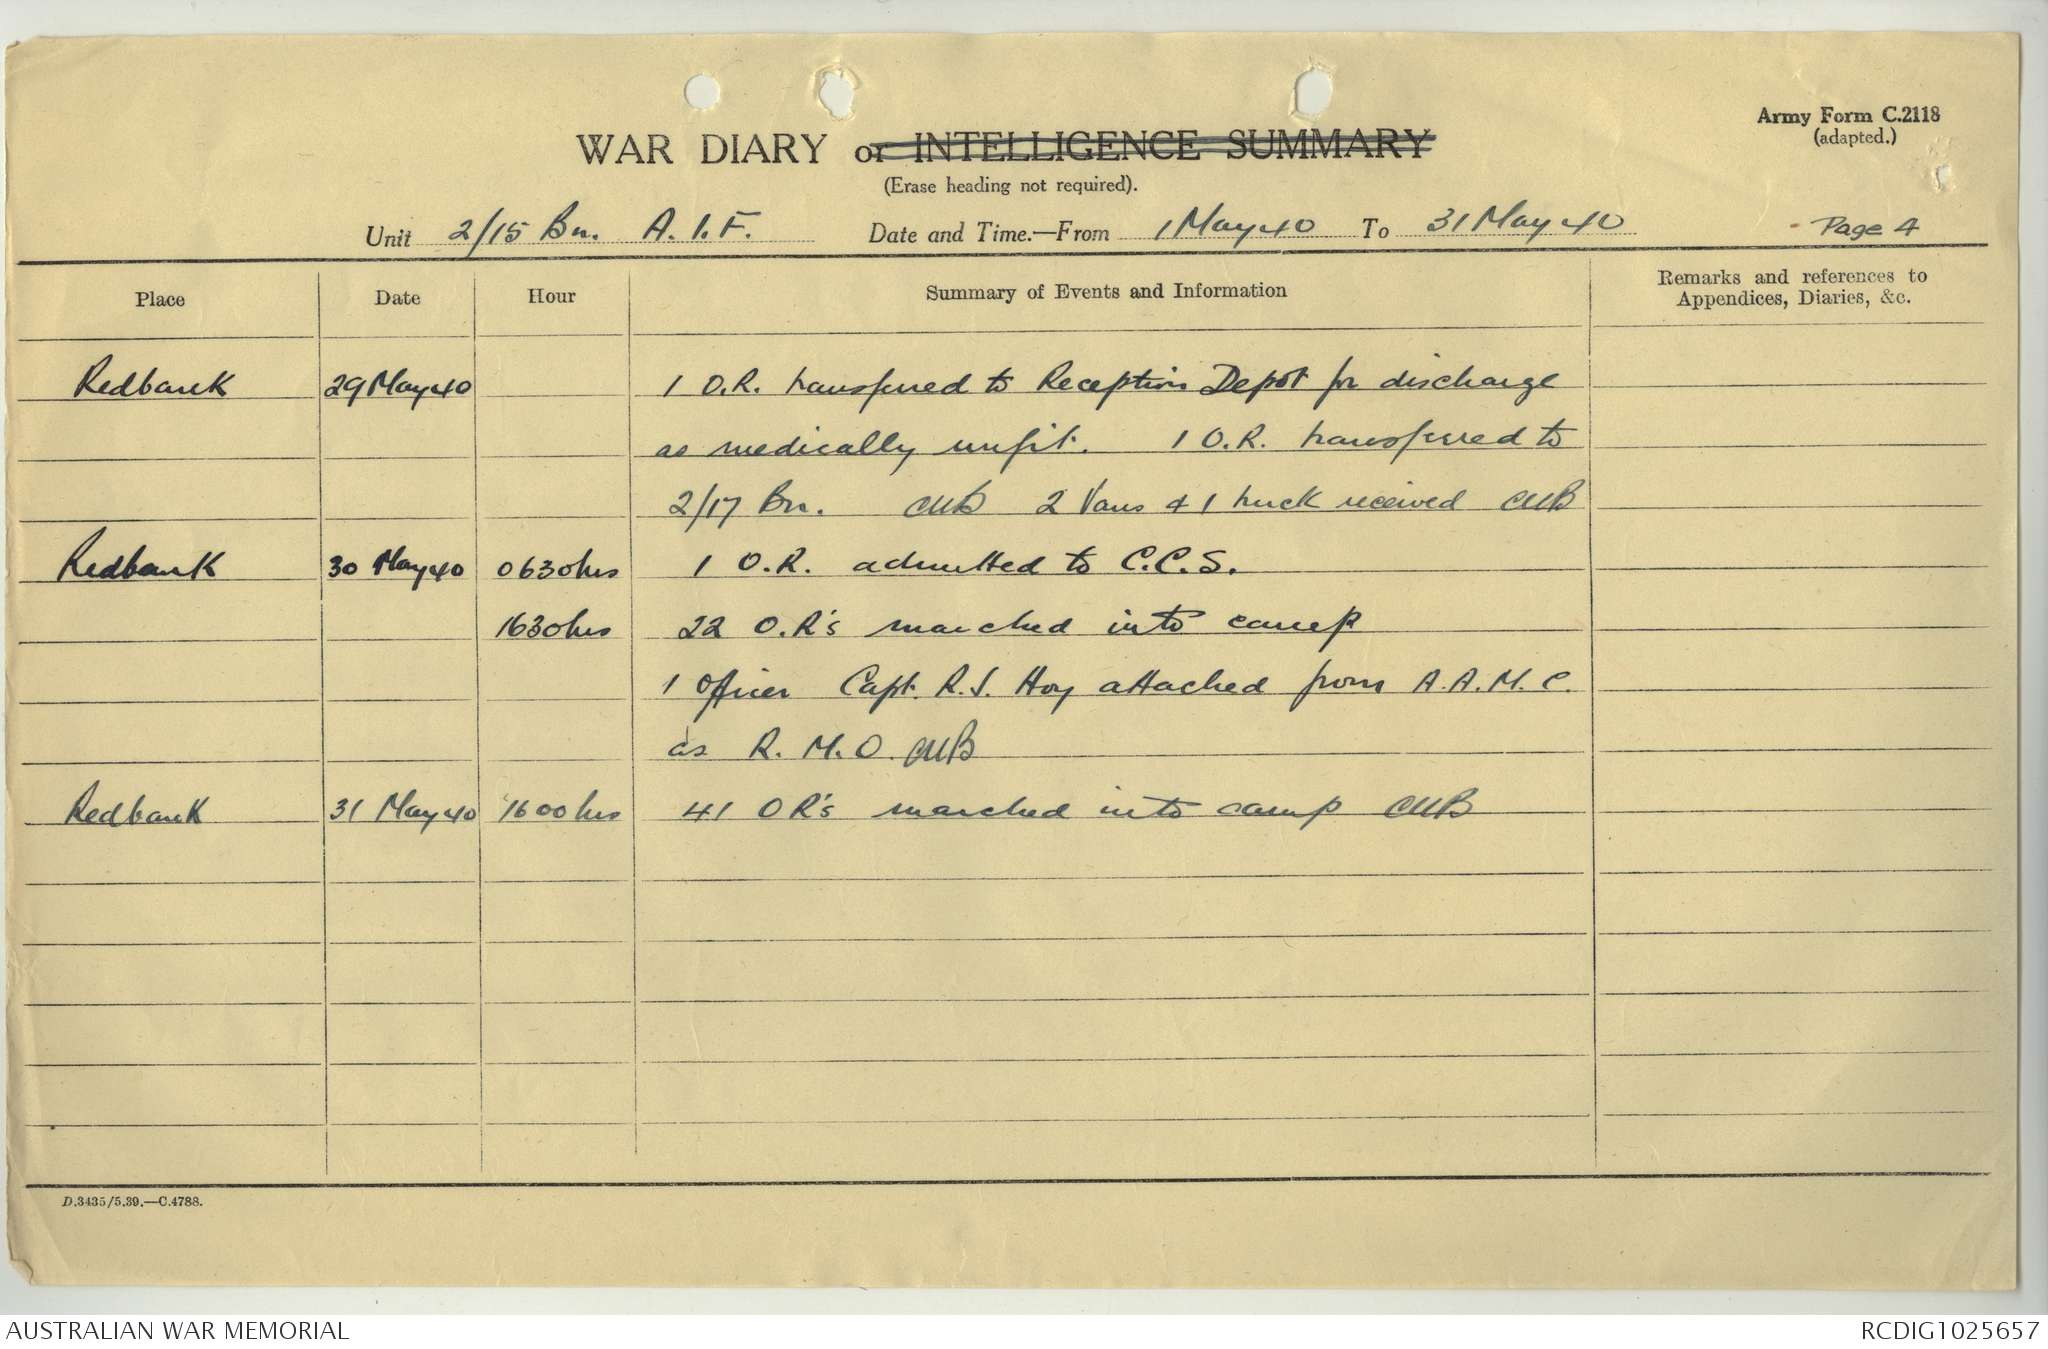 Army Form C.2118
(adapted.)
WAR DIARY or INTELLIGENCE SUMMARY
(Erase heading not required).
Unit 2/15 Bn. A.I.F. Date and Time.—From 1 May 40 To 31 May 40 Page 4
Place Date Hour Summary of Events and Information Remarks and references to Appendices, Diaries, &c.
Redbank 29 May 40 1 O.R. transferred to Reception Depot for discharge
as medically unfit. 1 O.R. transferred to
2/17 Bn. CMB 2 Vans & 1 truck received CMB
Redbank 30 May 40 0630hrs 1 O.R. admitted to C.C.S.
1630hrs 22 O.R's marched into camp
1 Officer Capt. R.J. Hoy attached from A.A.M.C.
as R.M.O. CMB
Redbank 31 May 40 1600hrs 41 OR's marched into camp CMB
D.3435/5.39.—C.4788.
AUSTRALIAN WAR MEMORIAL RCDIG1025657